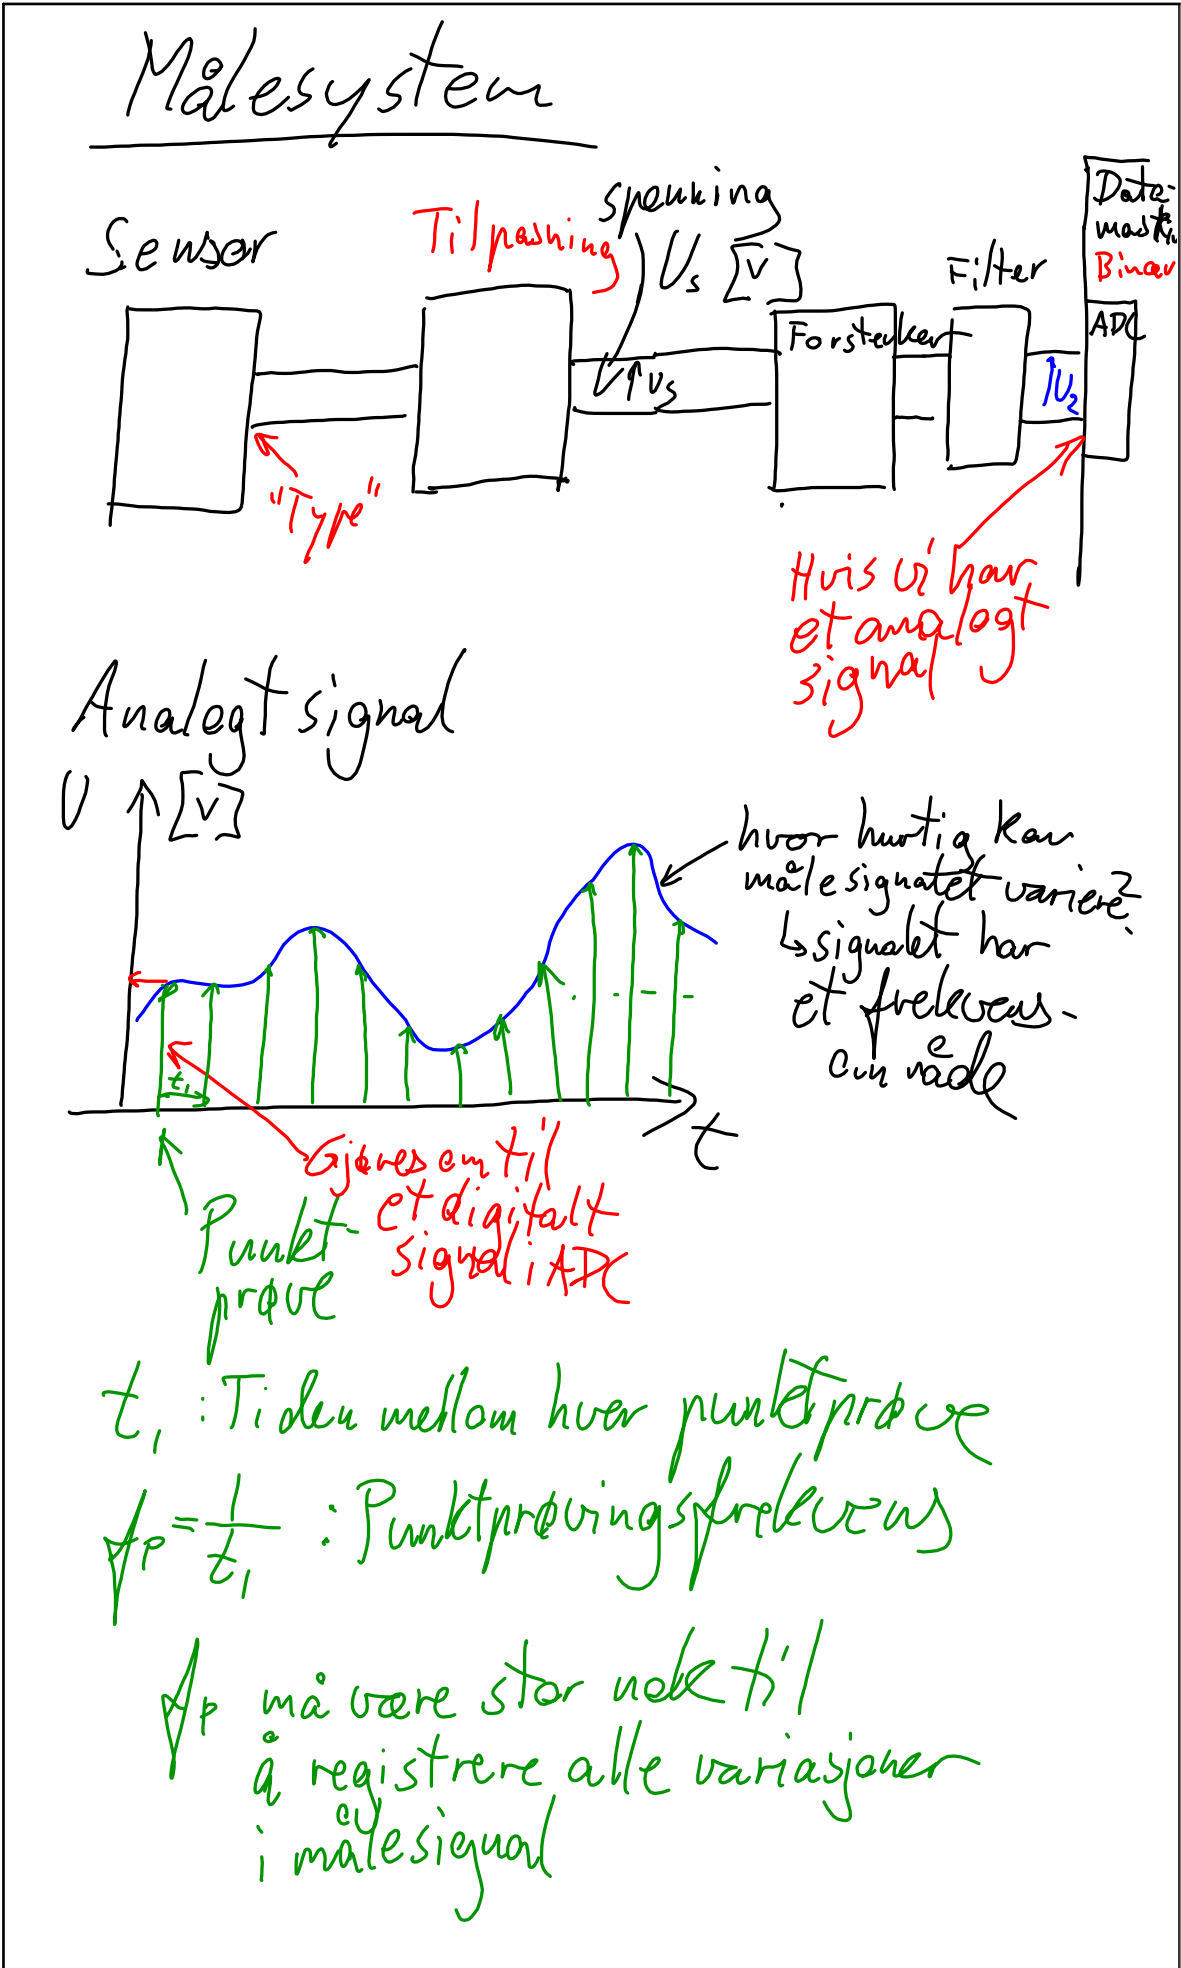 Målesystem
Sensor
Tilpasning
spenning
Us [V]
Filter
Data-
maskin
Binær
ADC
Forsterker
Us
U2
"Type"
Hvis vi har
et analogt
signal
Analogt signal
U [V]
hvor hurtig kan
målesignalet variere?
↳ signalet har
et frekvens-
område
t1
t
Gjøres om til
et digitalt
signal i ADC
Punkt-
prøve
t1 : Tiden mellom hver punktprøve
fp = 1/t1 : Punktprøvingsfrekvens
fp må være stor nok til
å registrere alle variasjoner
i målesignal